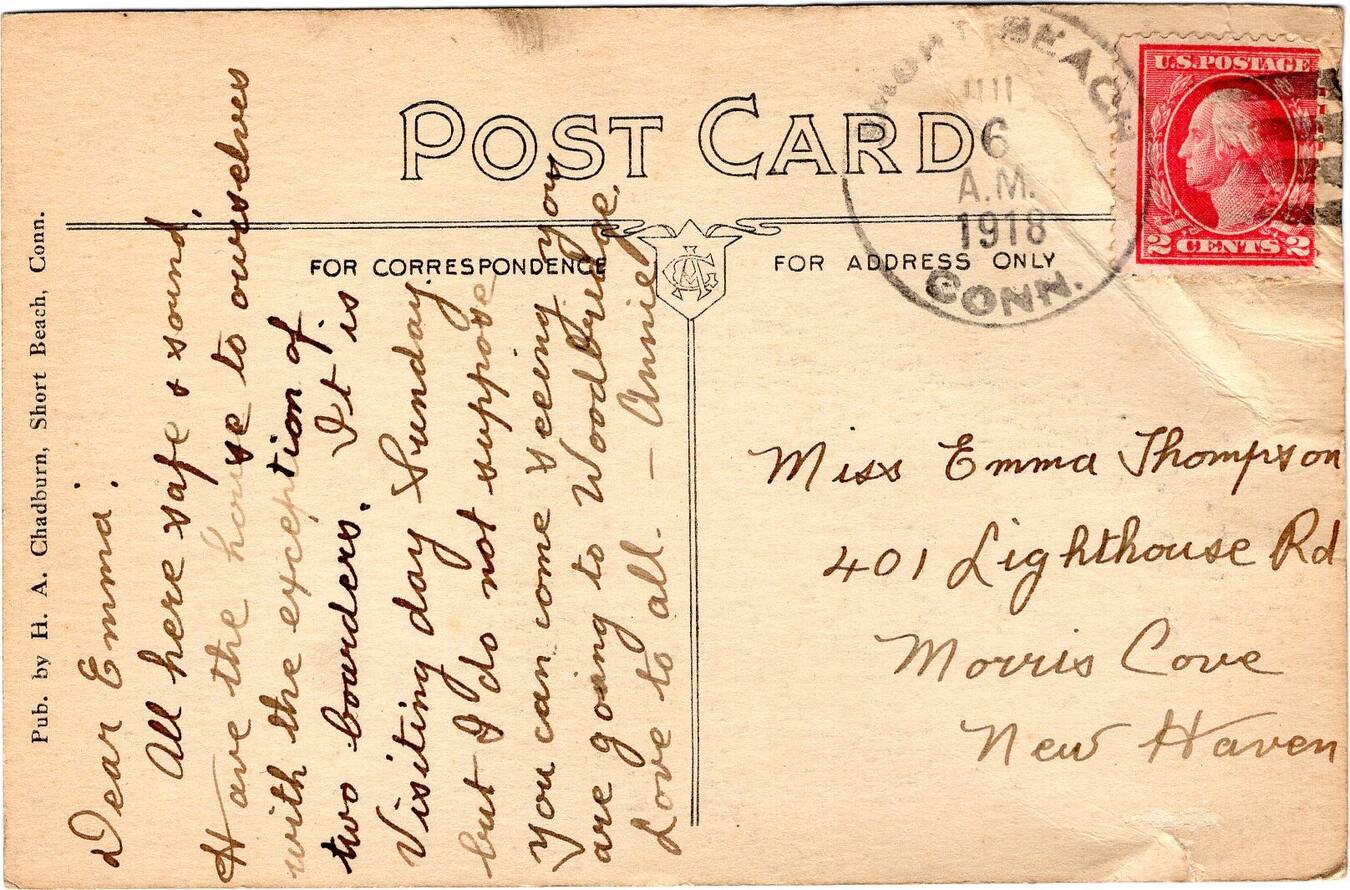 POST CARD
FOR CORRESPONDENCE
FOR ADDRESS ONLY
Pub. by H. A. Chadburn, Short Beach, Conn.
Dear Emma:
All here safe & sound.
Have the house to ourselves
with the exception of
two boarders. It is
Visiting day Sunday
but I do not suppose
you can come seeing you
are going to Woodbridge.
Love to all. — Annie
SHORT BEACH
6
A.M.
1918
CONN.
U.S. POSTAGE
2 CENTS 2
Miss Emma Thompson
401 Lighthouse Rd
Morris Cove
New Haven